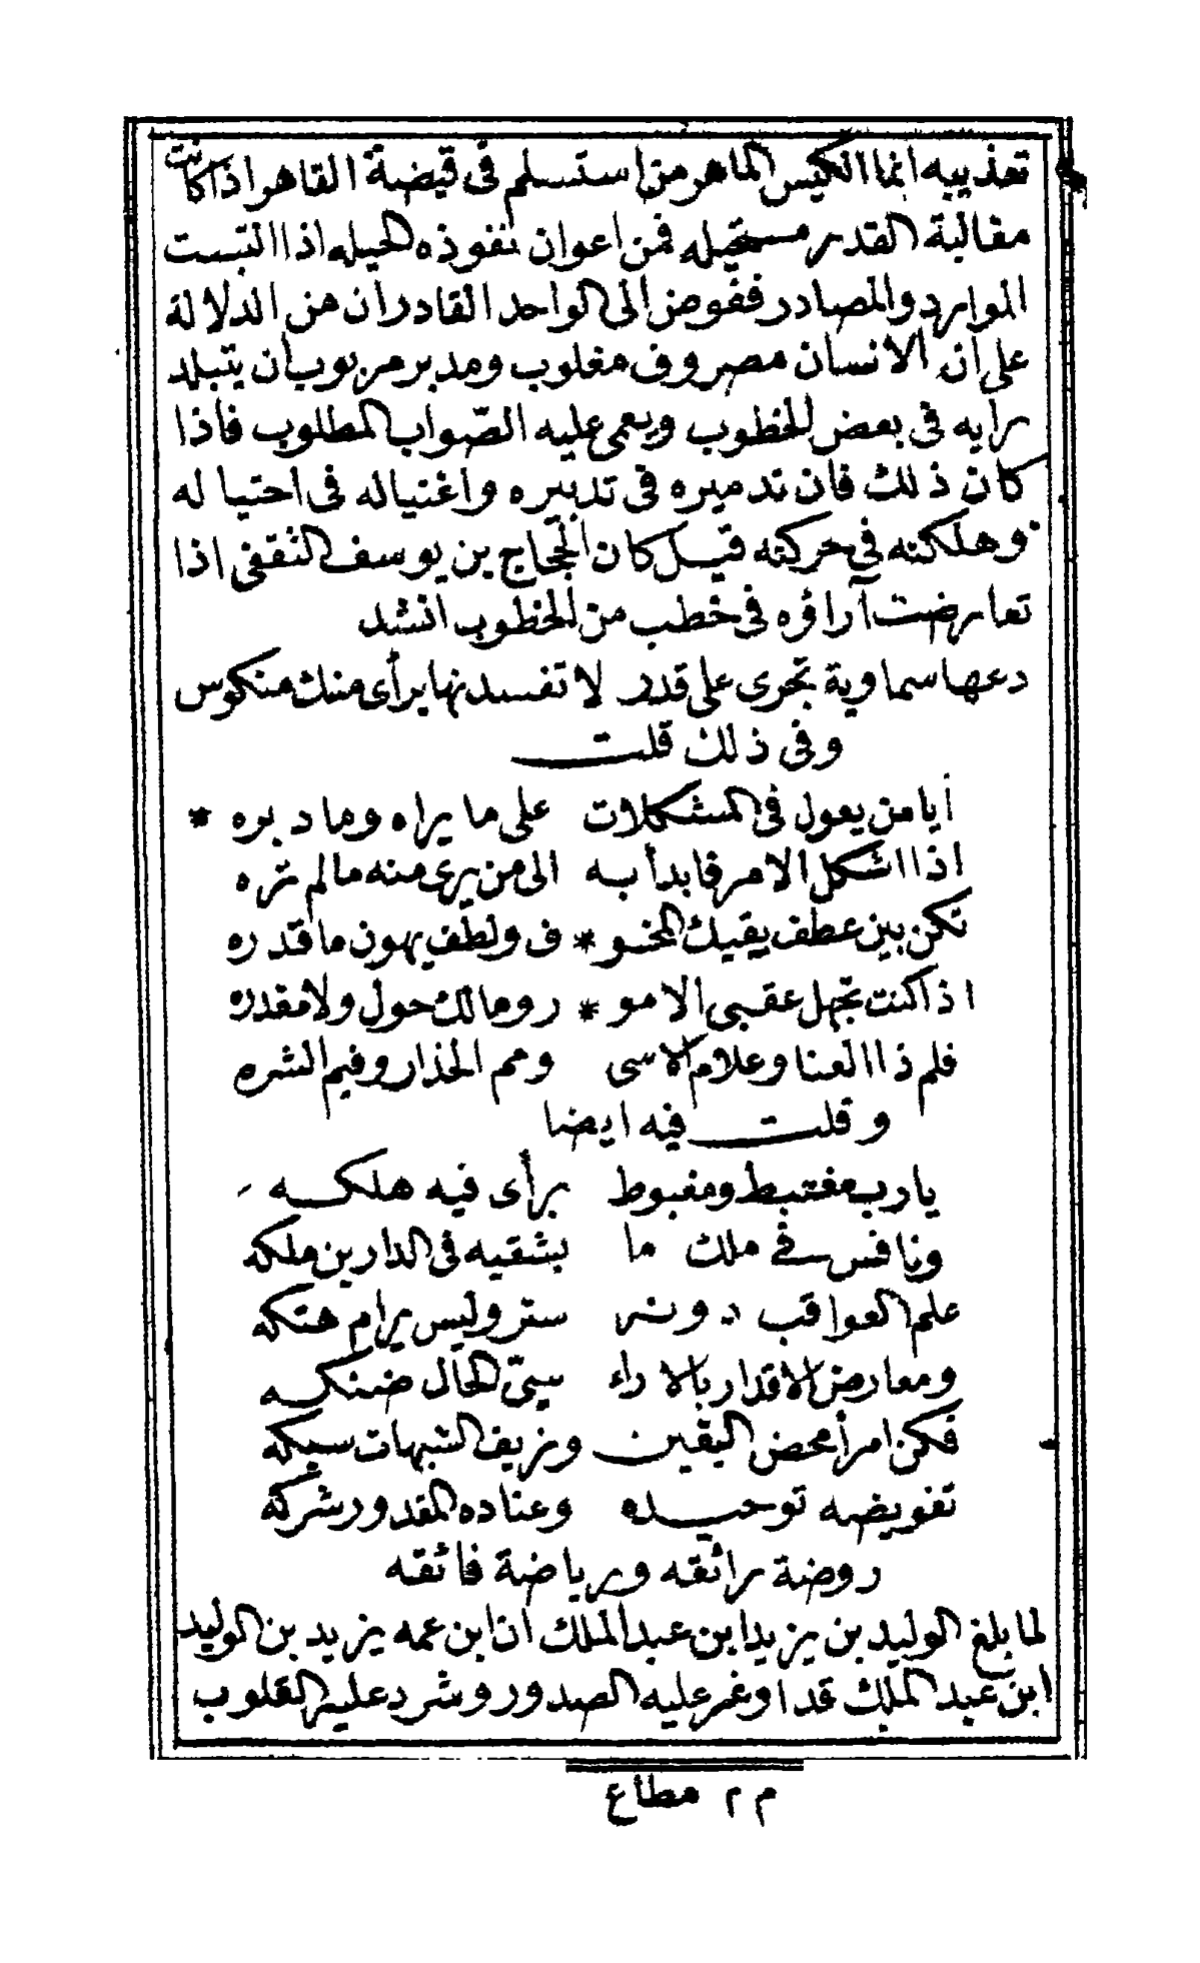 تعذيبه انما الكيس الماهر من استسلم فى قبضة القاهر اذا كانت
مغالبة القدر مستحيله فمن اعوان نفوذه الحيله اذا التبست
الموارد والمصادر ففوض الى الواحد القادر ان من الدلالة
على ان الانسان مصروف مغلوب ومدبر مربوب ان يتبلد
رايه فى بعض الخطوب ويعمى عليه الصّواب المطلوب فاذا
كان ذلك فان تدميره فى تدبيره واغتياله فى احتياله
وهلكته فى حركته قيل كان الحجّاج بن يوسف الثقفى اذا
تعارضت آراؤه فى خطب من الخطوب انشد
دعها سماوية تجرى على قدر لا تفسدنها برأى منك منكوس
وفى ذلك قلت
أيا من يعول فى المشكلات على ما يراه وما دبره *
اذا اشكل الامر فابدأ به الى من يرى منه ما لم تره
تكن بين عطف يقيك المخو * ف ولطف يهون ما قدره
اذا كنت تجهل عقبى الامو * ر وما لك حول ولا مقدره
فلم ذا العنا وعلام الاسى ومم الحذار وفيم الشره
وقلت فيه ايضا
يا رب مغتبط ومغبوط برأى فيه هلكه
ونافس فى ملك ما يشقيه فى الدارين ملكه
علم العواقب دونه ستر وليس يرام هتكه
ومعارض الاقدار بالاراء سيئ الحال ضنكه
فكن امرأ محض اليقين وزيف الشبهات سبكه
تفويضه توحيده وعناده المقدور شركه
روضة رائقه ورياضة فائقه
لما بلغ الوليد بن يزيد ابن عبد الملك ان ابن عمه يزيد بن الوليد
ابن عبد الملك قد اوغر عليه الصدور وشرد عليه القلوب
م ٢ مطاع